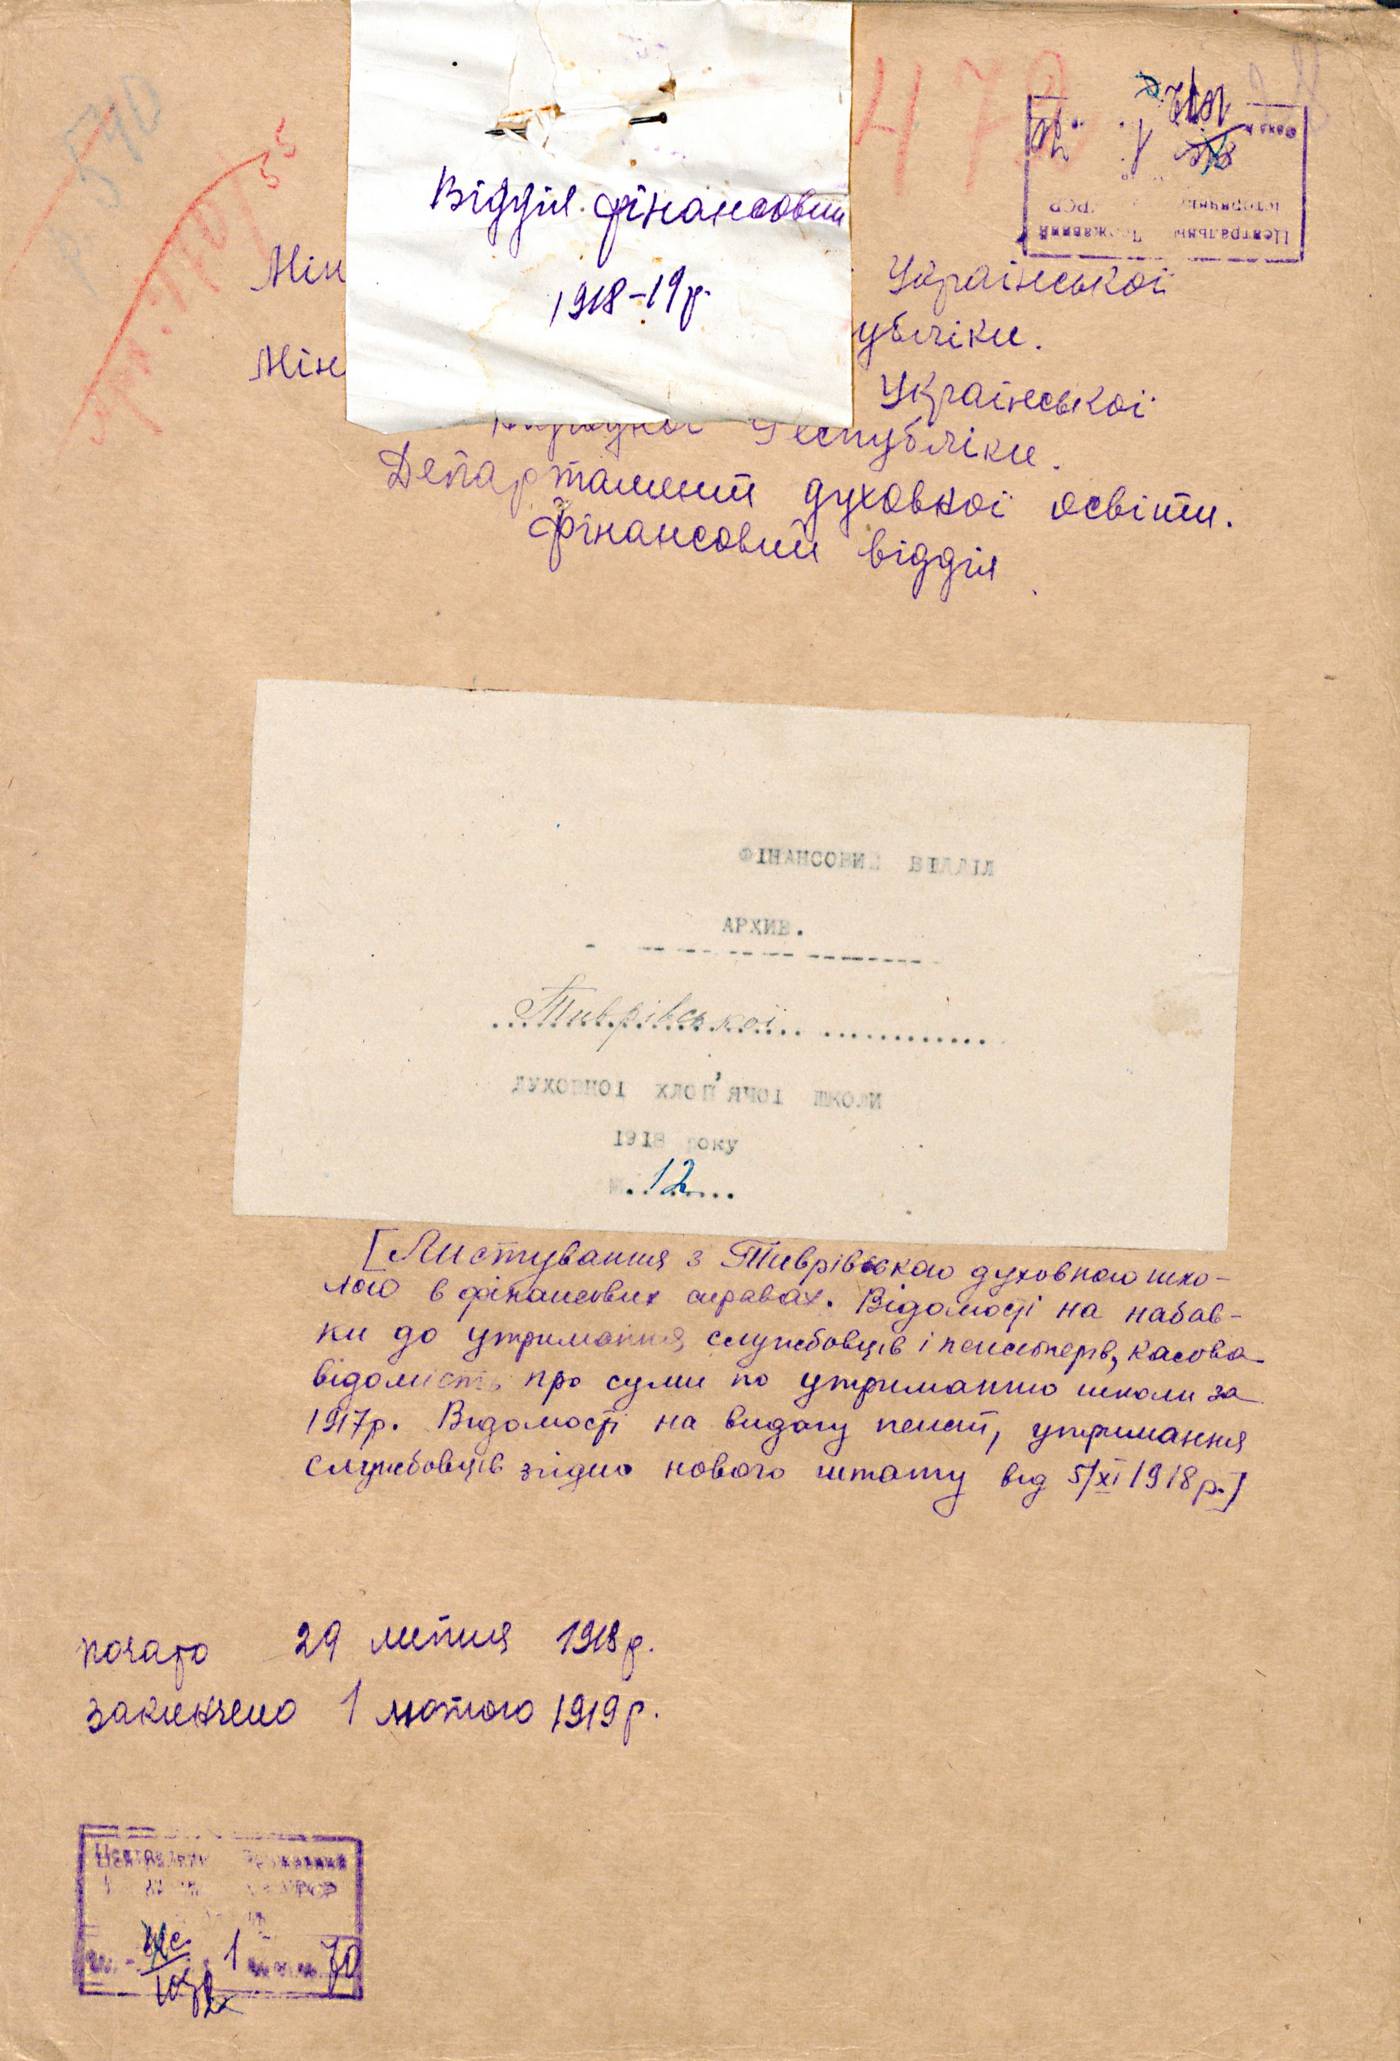 590
478
55
Фонд №
1072
1
70
Центральний Державний
історичний УРСР
Відділ фінансовий
1918-19р.
Мін Української
убліки.
Мін Української
Народної Республіки.
Департамент духовної освіти.
Фінансовий відділ
ФІНАНСОВИЙ ВІДДІЛ
АРХИВ.
Тиврівської
ДУХОВНОІ ХЛОП'ЯЧОІ ШКОЛИ
1918 року
№ 12
[Листування з Тиврівською духовною шко-
лою в фінансових справах. Відомості на набав-
ки до утримання службовців і пенсіонерів, касова
відомість про суми по утриманню школи за
1917р. Відомості на видачу пенсії, утримання
службовців згідно нового штату від 5/XI 1918р.]
почато 29 липня 1918р.
закінчено 1 лютого 1919р.
Центральний Державний
УРСР
1 70
1072